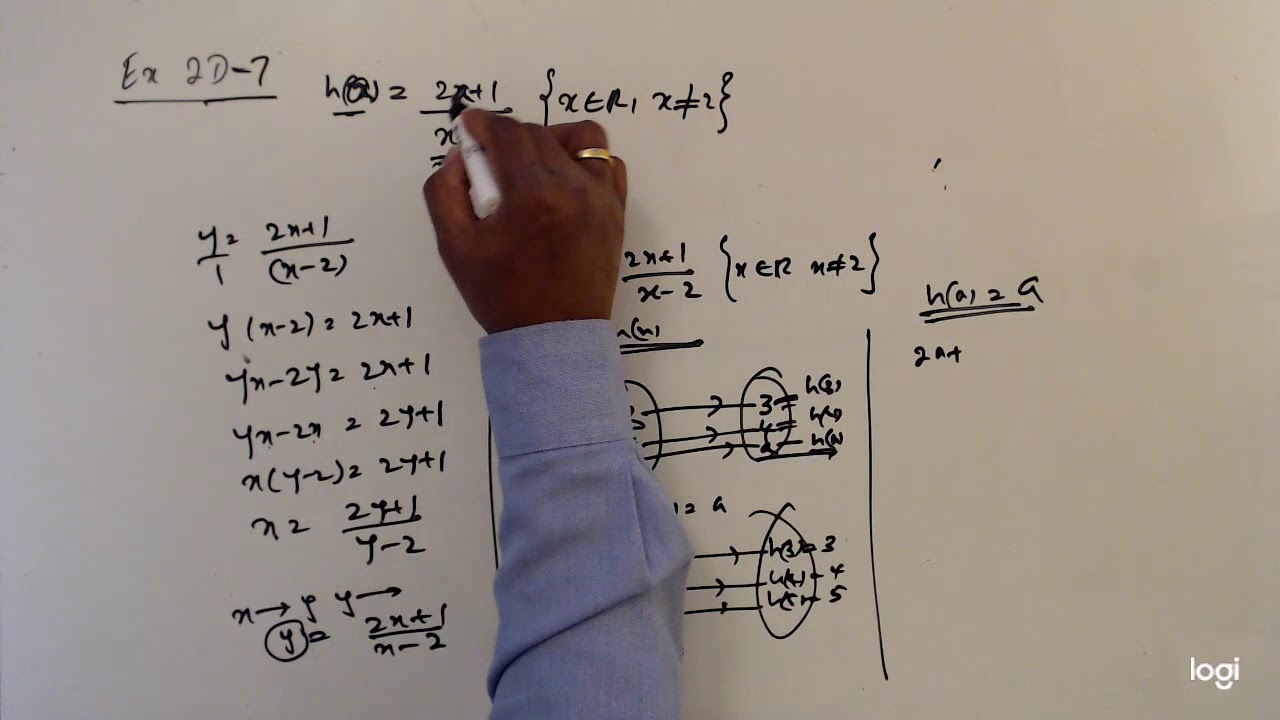 Ex 2D-7
h(x) = 2x+1 {x∈R, x≠2}
x
y/1 = 2x+1/(x-2)
y(x-2) = 2x+1
yx-2y = 2x+1
yx-2x = 2y+1
x(y-2) = 2y+1
x = 2y+1/y-2
x → y y →
y = 2x+1/x-2
2x+1/x-2 {x∈R x≠2}
3 h(3)
4
= a
h(3) = 3
4
5
h(a) = a
2a+
logi